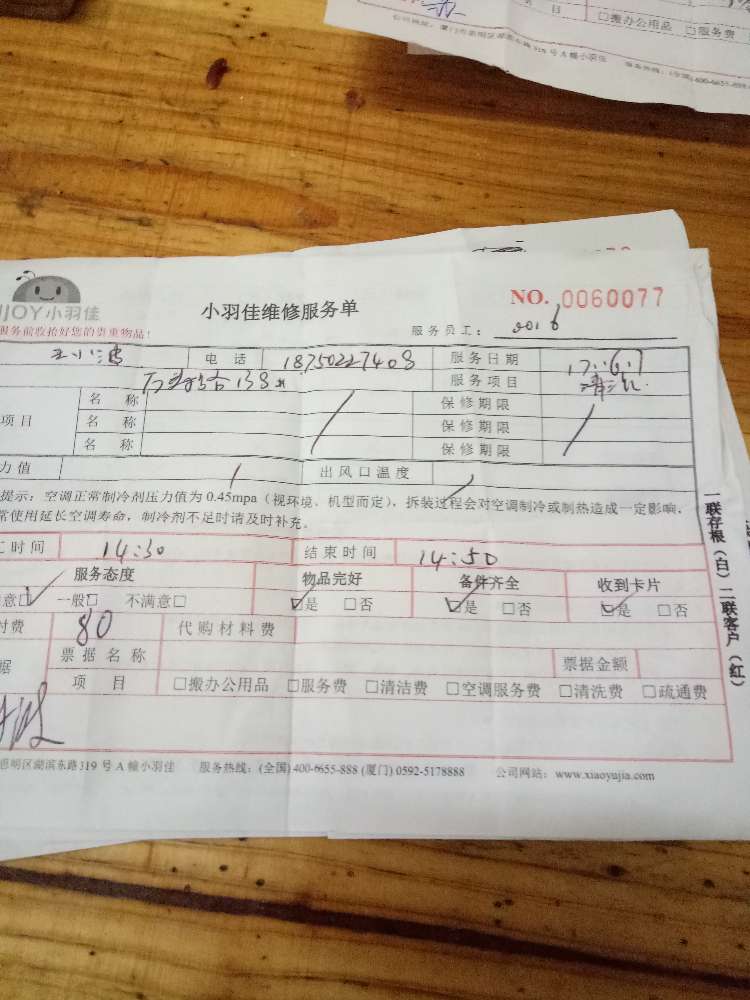 项 目 □搬办公用品 □服务费
NO. 0060077
JOY小羽佳
小羽佳维修服务单
服务前收拾好您的贵重物品!
服务员工: 2016
电 话 18750227408 服务日期 17.6.7
138 服务项目 清洗
项目 名 称 保修期限
名 称 保修期限
名 称 保修期限
力值 出风口温度
提示:空调正常制冷剂压力值为 0.45mpa(视环境、机型而定),拆装过程会对空调制冷或制热造成一定影响.
常使用延长空调寿命,制冷剂不足时请及时补充.
工时间 14:30 结束时间 14:50
服务态度 物品完好 备件齐全 收到卡片
意□ 一般□ 不满意□ □是 □否 □是 □否 □是 □否
付费 80 代购材料费
据 票据名称 票据金额
项 目 □搬办公用品 □服务费 □清洁费 □空调服务费 □清洗费 □疏通费
思明区湖滨东路319 号 A 幢小羽佳 服务热线:(全国) 400-6655-888 (厦门) 0592-5178888 公司网站:www.xiaoyujia.com
一联存根(白)二联客户(红)